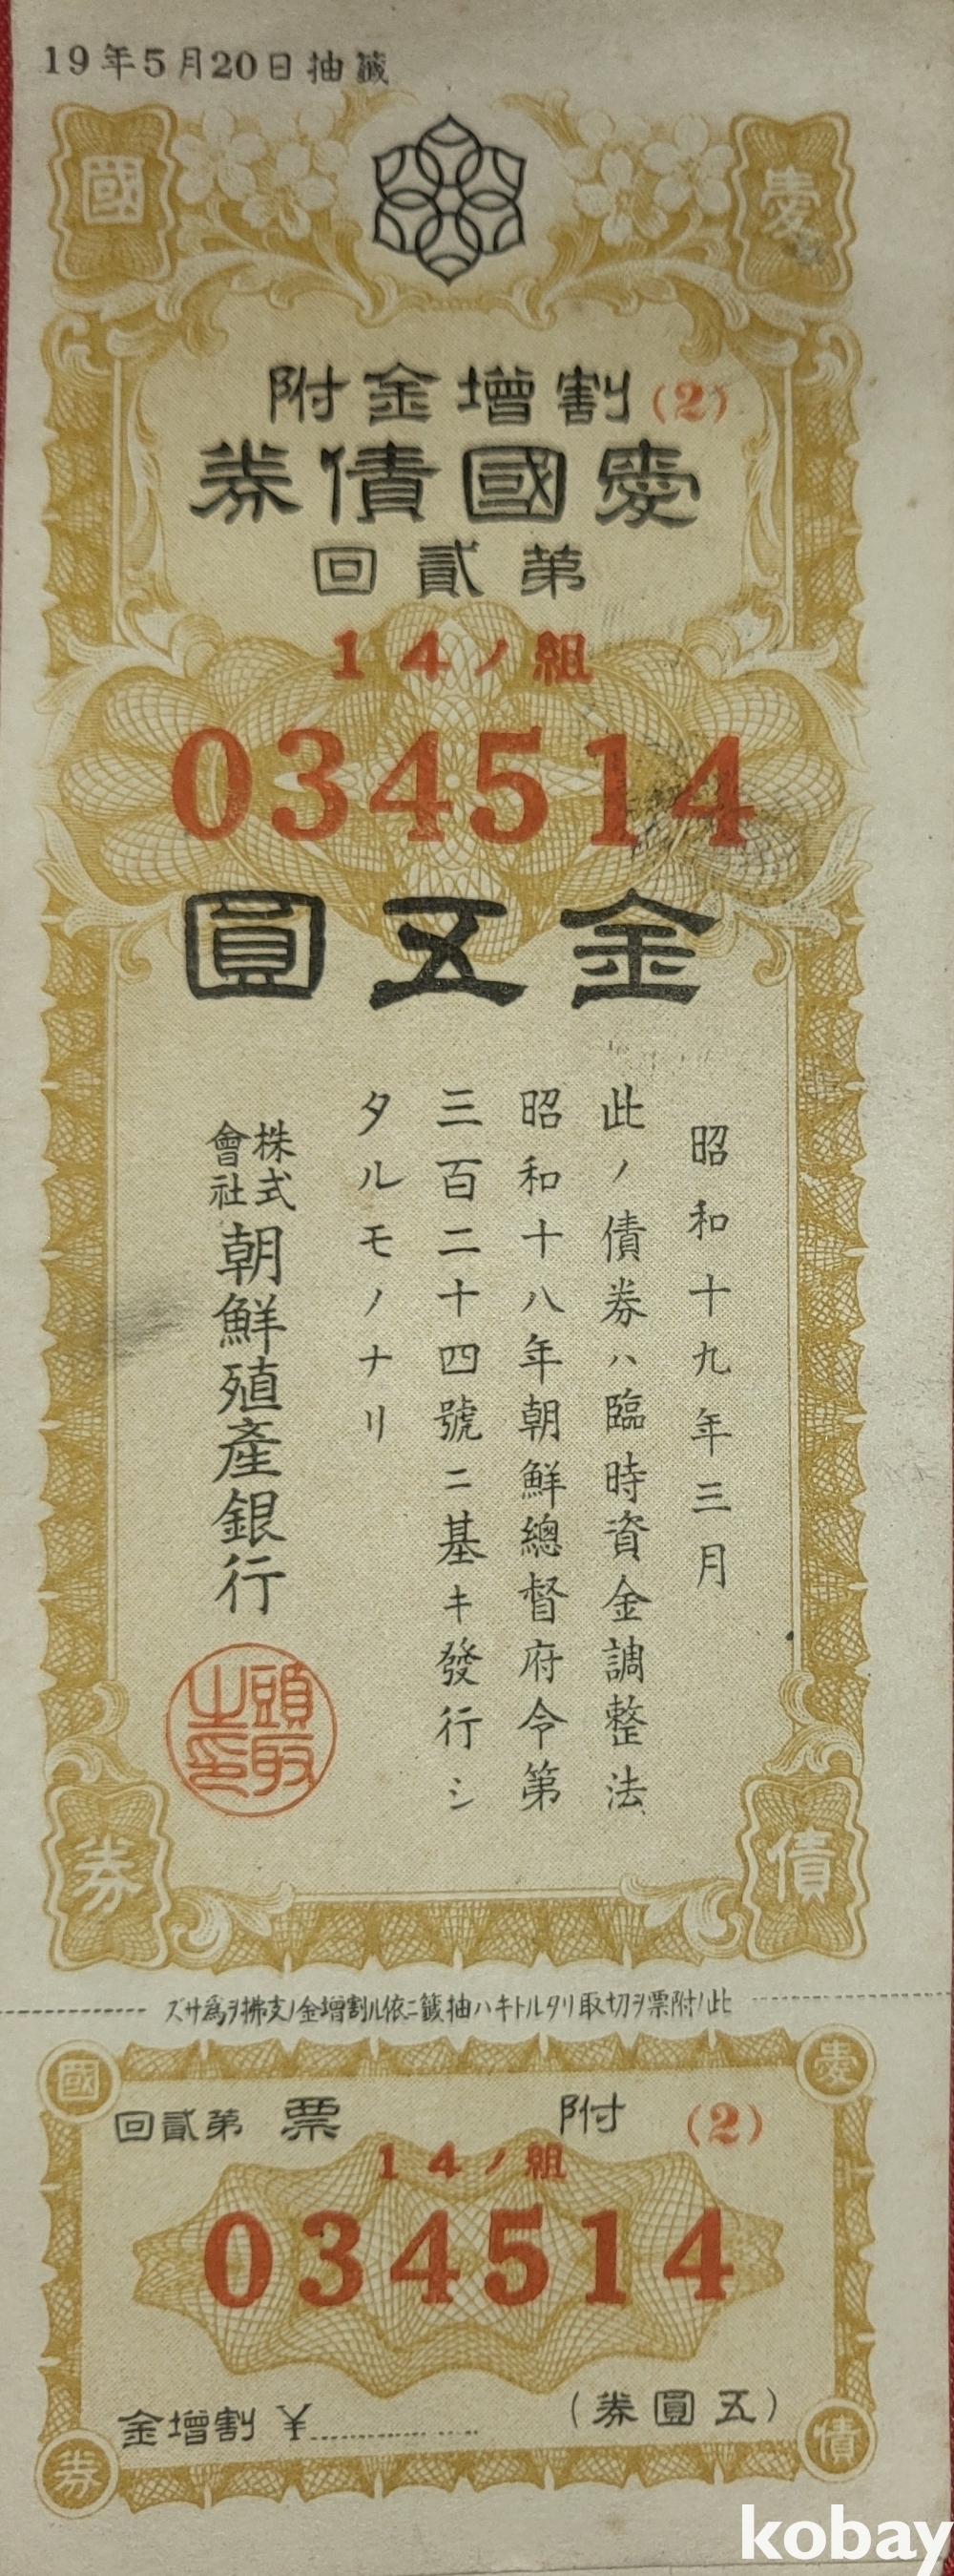 19年5月20日抽籤
愛國
割增金附(2)
愛國債券
第貳回
14ノ組
034514
金五圓
昭和十九年三月
此ノ債券ハ臨時資金調整法
昭和十八年朝鮮總督府令第
三百二十四號ニ基キ發行シ
タルモノナリ
株式會社朝鮮殖產銀行
頭取之印
債券
此ノ附票ヲ切取リタルトキハ抽籤ニ依ル割增金ノ支拂ヲ爲サズ
愛國
(2)附票 第貳回
14ノ組
034514
(五圓券)
割增金 ¥
債券
kobay